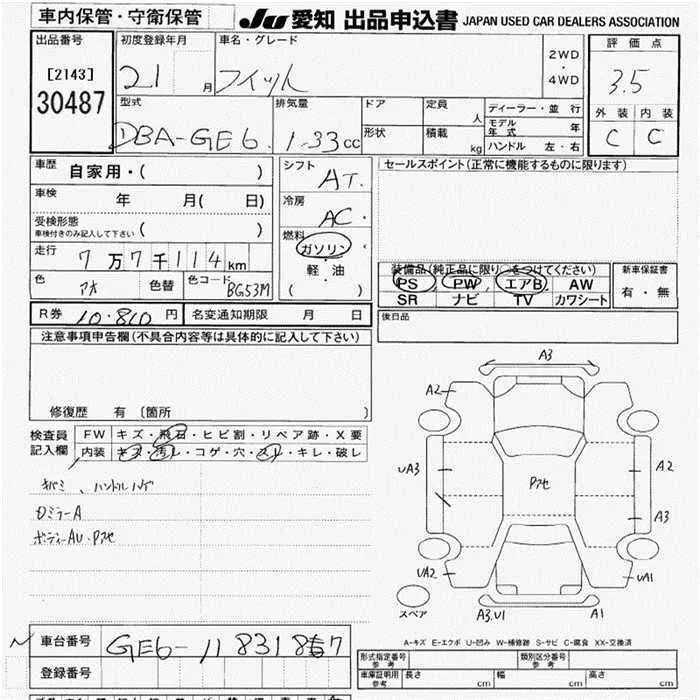 車内保管・守衛保管
JU 愛知 出品申込書 JAPAN USED CAR DEALERS ASSOCIATION
出品番号
[2143]
30487
初度登録年月
21 月
車名・グレード
フィット
2WD
・
4WD
評価点
3.5
外装 内装
C C
型式
DBA-GE6.
排気量
1.33cc
ドア
形状
定員 人
積載 kg
ディーラー・並行
モデル年式 年
ハンドル 左・右
車歴 自家用・( )
車検 年 月( 日)
受検形態 ( )
車検付きのみ記入して下さい
走行 7万7千114km
色 アオ 色替 色コード BG53M
シフト AT.
冷房 AC.
燃料
ガソリン
・
軽・油
( )
セールスポイント(正常に機能するものに限ります)
装備品(純正品に限り○をつけてください)
PS PW エアB AW
SR ナビ TV カワシート
新車保証書
有・無
R券 10.810円 名変通知期限 月 日
後日品
注意事項申告欄(不具合内容等は具体的に記入して下さい)
修復歴 有 〔箇所 〕
検査員
記入欄
FW キズ・飛石・ヒビ割・リペア跡・X要
内装 キズ・汚レ・コゲ・穴・スレ・キレ・破レ
キバミ、ハンドルハゲ
ロミラーA
ボディーAU・Pアセ
A3
A2
UA3
Pアセ
A2
A3
UA2
UA1
スペア
A3.U1
A1
A-キズ E-エクボ U-凹み W-補修跡 S-サビ C-腐食 XX-交換済
車台番号
登録番号
形式指定番号
参考
類別区分番号
参考
車庫証明用
参考
長さ cm 幅 cm 高さ cm